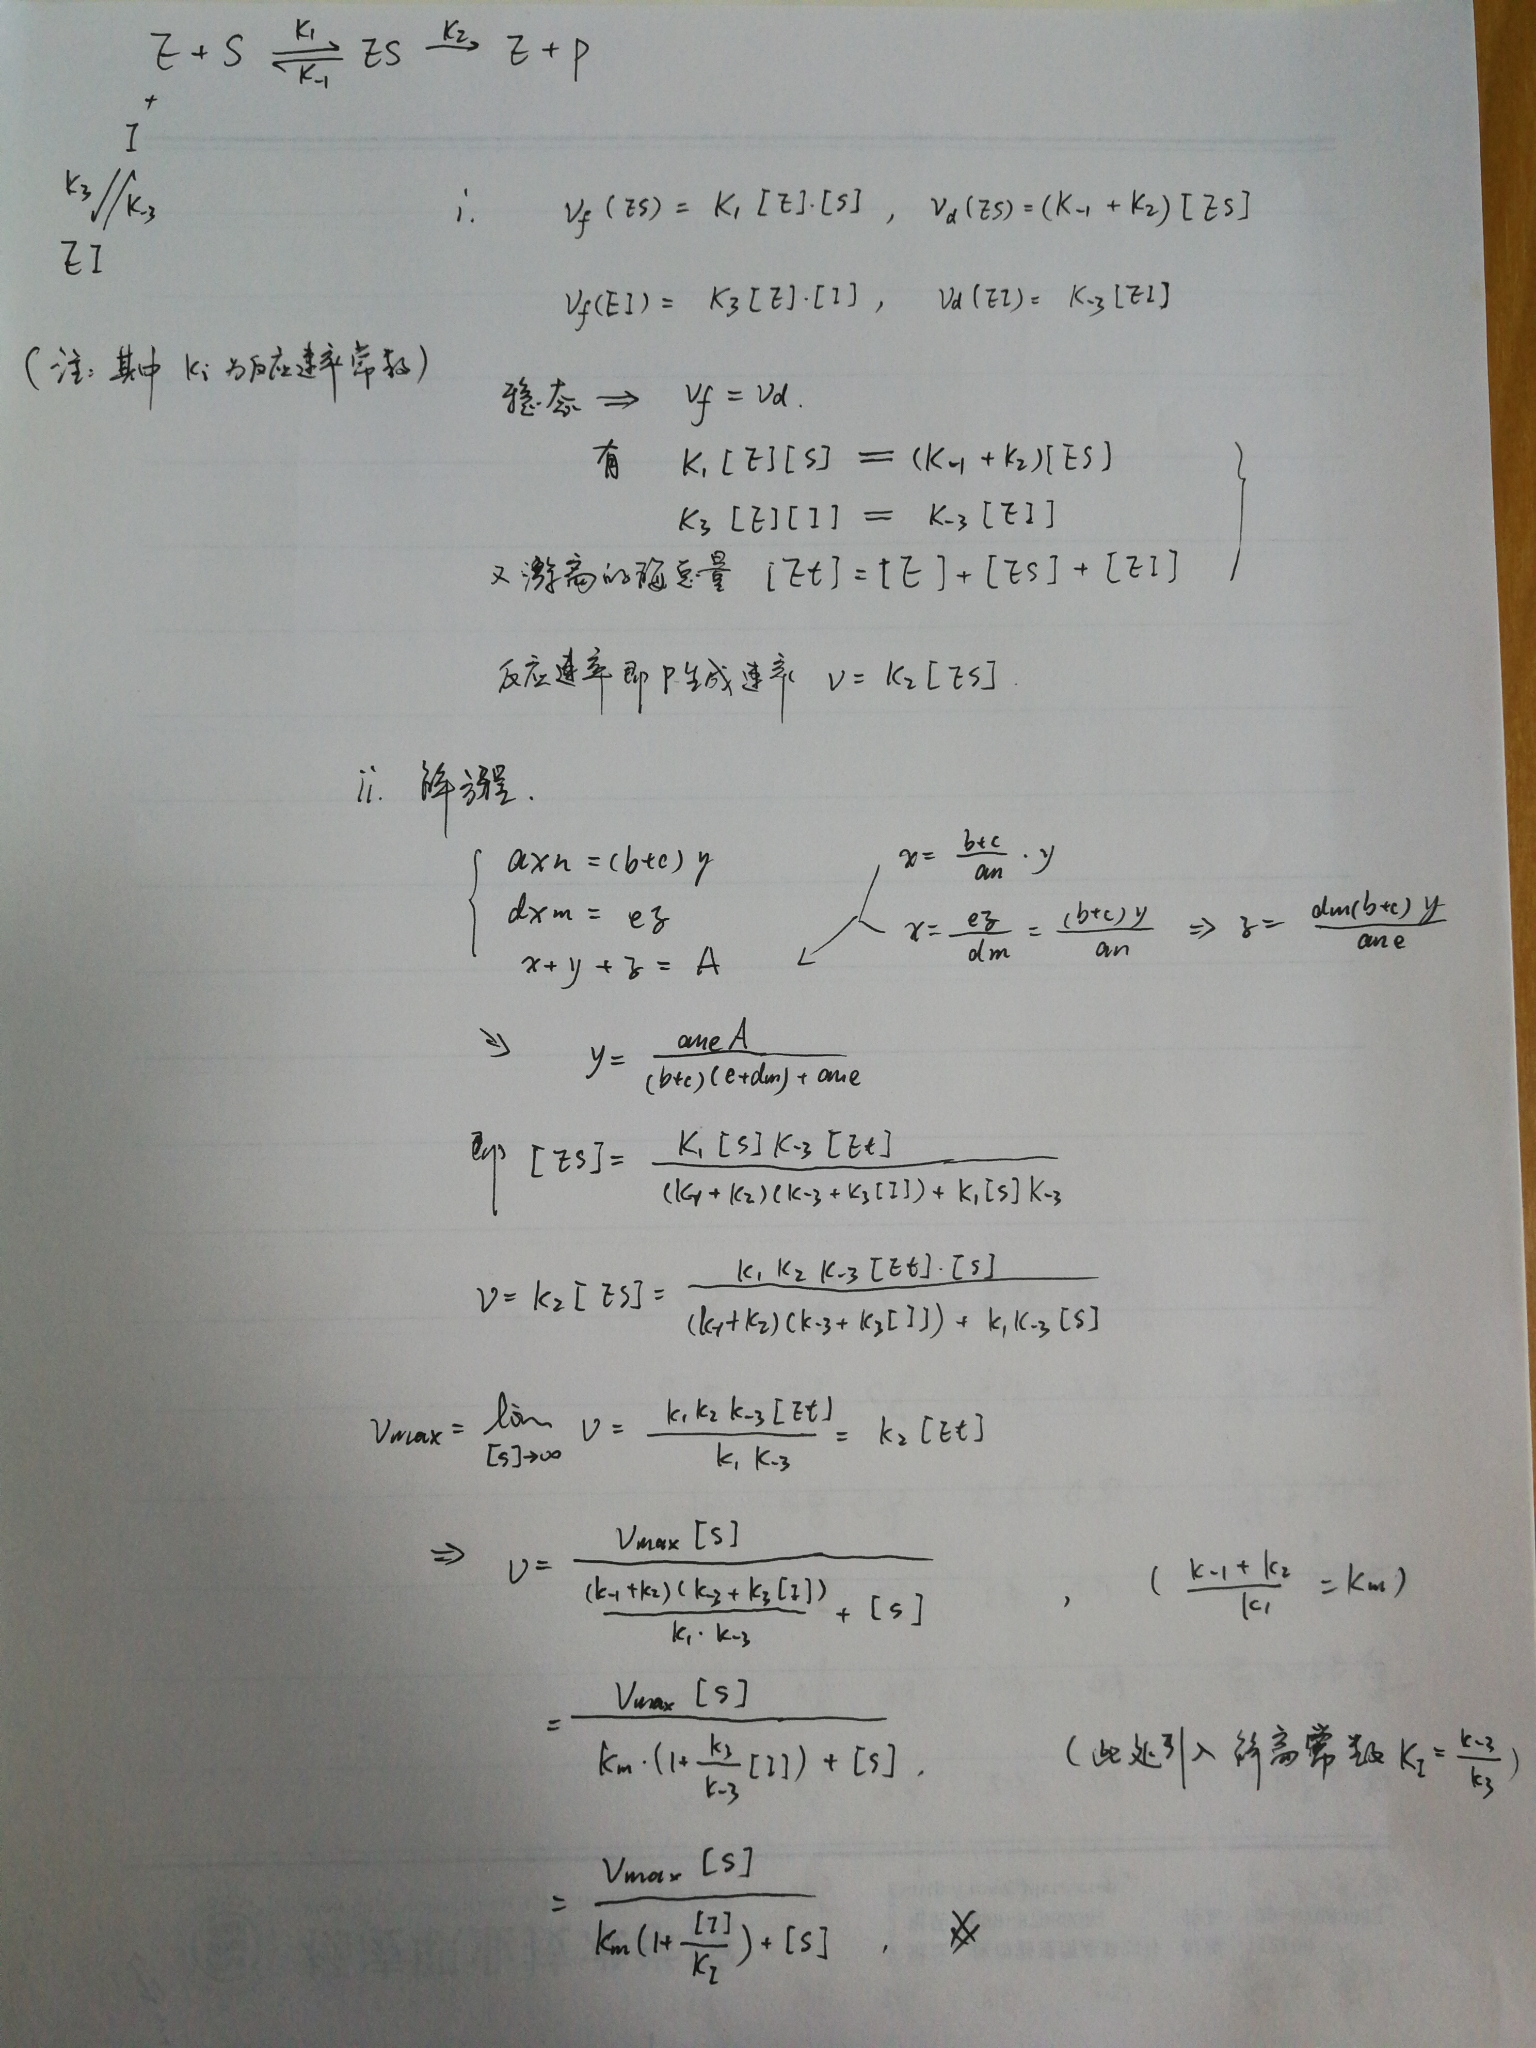 E + S ⇌ ES → E + P
K₁ K₋₁ K₂
+
I
K₃ // K₋₃
EI
(注: 其中 Ki 为反应速率常数)
i. Vf (ES) = K₁ [E]·[S] , Vd (ES) = (K₋₁ + K₂) [ES]
Vf(EI) = K₃ [E]·[I] , Vd (EI) = K₋₃ [EI]
稳态 ⇒ Vf = Vd.
有 K₁ [E][S] = (K₋₁ + K₂)[ES]
K₃ [E][I] = K₋₃ [EI]
又游离的酶总量 [Et] = [E] + [ES] + [EI]
反应速率即P生成速率 V = K₂ [ES] .
ii. 解方程.
axn = (b+c) y
dxm = ez
x + y + z = A
x = (b+c)/(an) · y
x = ez/(dm) = (b+c)y/(an) ⇒ z = dm(b+c)y/(ane)
⇒ y = aneA/((b+c)(e+dm)+ane)
即 [ES] = K₁[S]K₋₃[Et]/((K₋₁+K₂)(K₋₃+K₃[I])+K₁[S]K₋₃)
V = K₂[ES] = K₁K₂K₋₃[Et]·[S]/((K₋₁+K₂)(K₋₃+K₃[I])+K₁K₋₃[S])
Vmax = lim [S]→∞ V = K₁K₂K₋₃[Et]/(K₁K₋₃) = K₂[Et]
⇒ V = Vmax[S]/((K₋₁+K₂)(K₋₃+K₃[I])/(K₁·K₋₃)+[S]) , ((K₋₁+K₂)/K₁ = Km)
= Vmax[S]/(Km·(1+K₃/K₋₃[I])+[S]) . (此处引入解离常数 K_I = K₋₃/K₃)
= Vmax[S]/(Km(1+[I]/K_I)+[S]) .